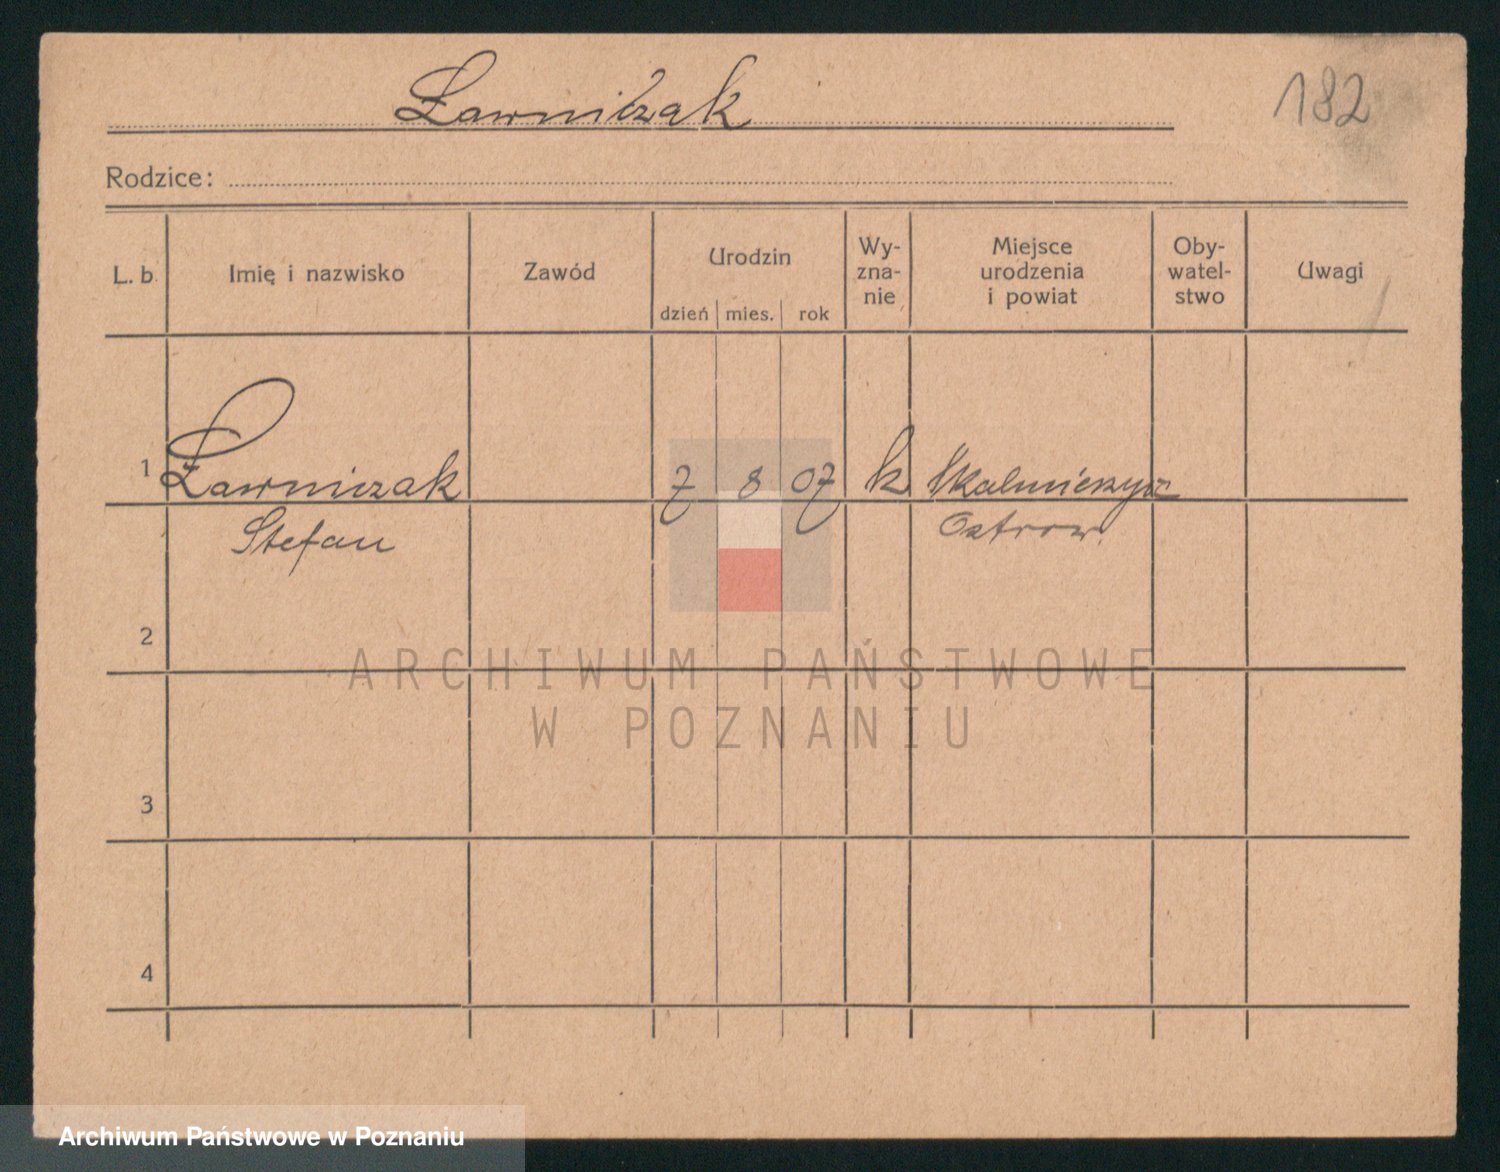 Ławniczak
182
Rodzice:
L. b.
Imię i nazwisko
Zawód
Urodzin
dzień mies. rok
Wy-
zna-
nie
Miejsce
urodzenia
i powiat
Oby-
watel-
stwo
Uwagi
1 Ławniczak 7 8 07 k Skalmierzyce
Stefan Ostrow.
2
3
4
ARCHIWUM PAŃSTWOWE
W POZNANIU
Archiwum Państwowe w Poznaniu